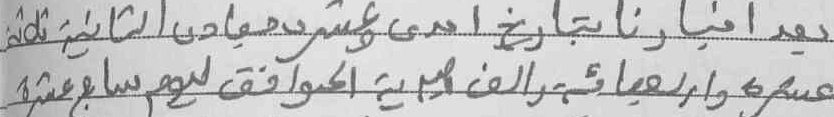 بعد اخبارنا بتاريخ احدى وعشرين جمادى الثانية ثلاثة
عشره واربعمائة والف هجرية الموافق ليوم سابع عشره